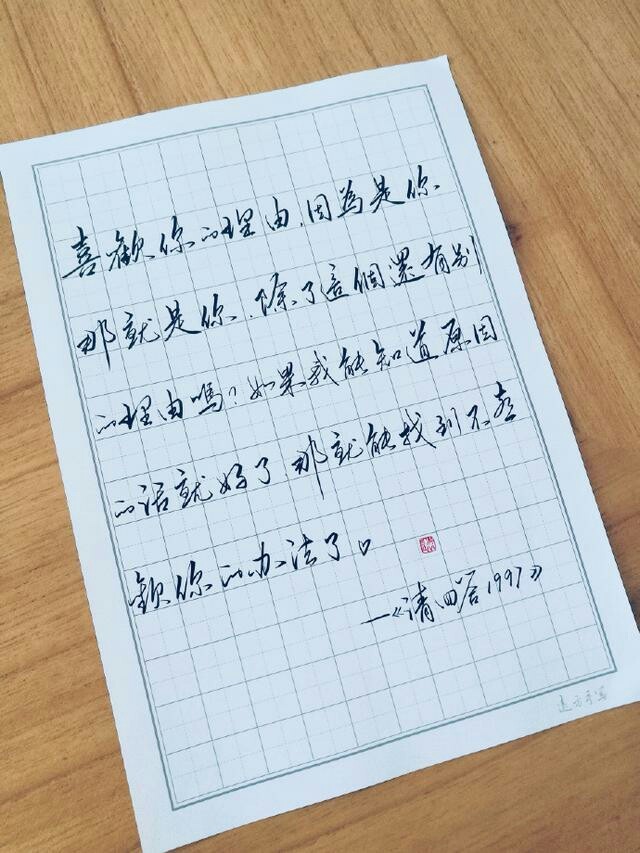 喜歡你的理由,因為是你
那就是你,除了這個還有别
的理由嗎?如果我能知道原因
的话就好了,那就能找到不喜
歡你的办法了。
—《请回答1997》
遠方手寫